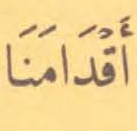 أَقْدَامَنَا